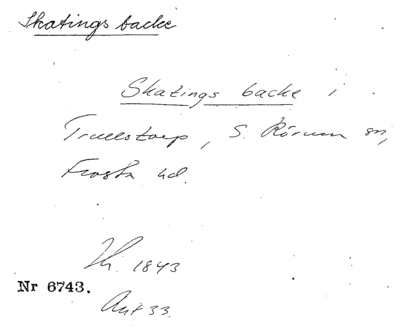 Skatings backe
Skatings backe i
Trulstorp, S. Rörum sn,
Frosta hd.
1843
Nr 6743.
Ant 33.